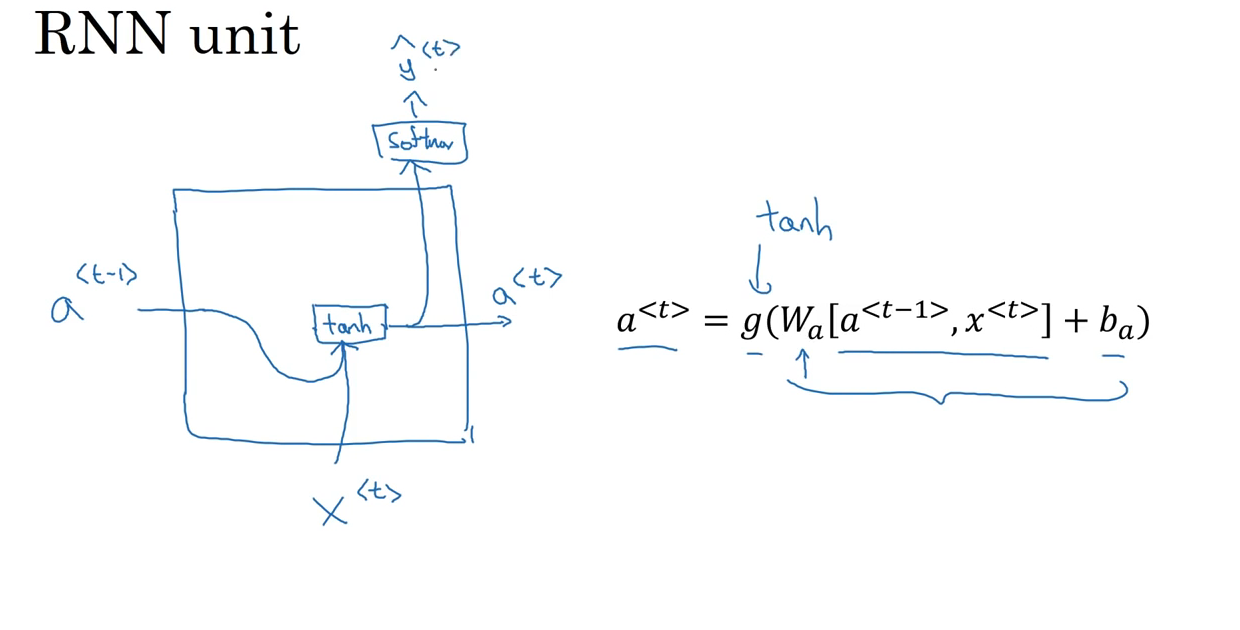 RNN unit
ŷ<t>
Softmax
tanh
a<t-1>
a<t>
tanh
a<t> = g(Wₐ[a<t−1>, x<t>] + bₐ)
x<t>